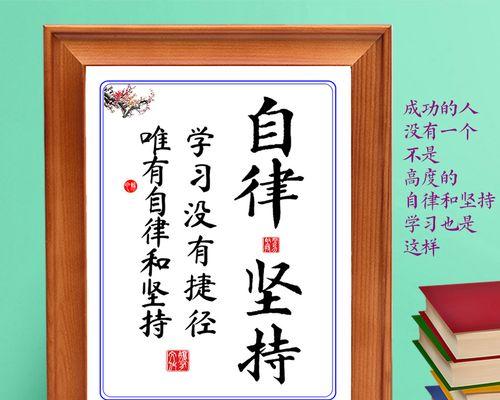 自律坚持
学习没有捷径
唯有自律和坚持
成功的人
没有一个
不是
高度的
自律和坚持
学习也是
这样